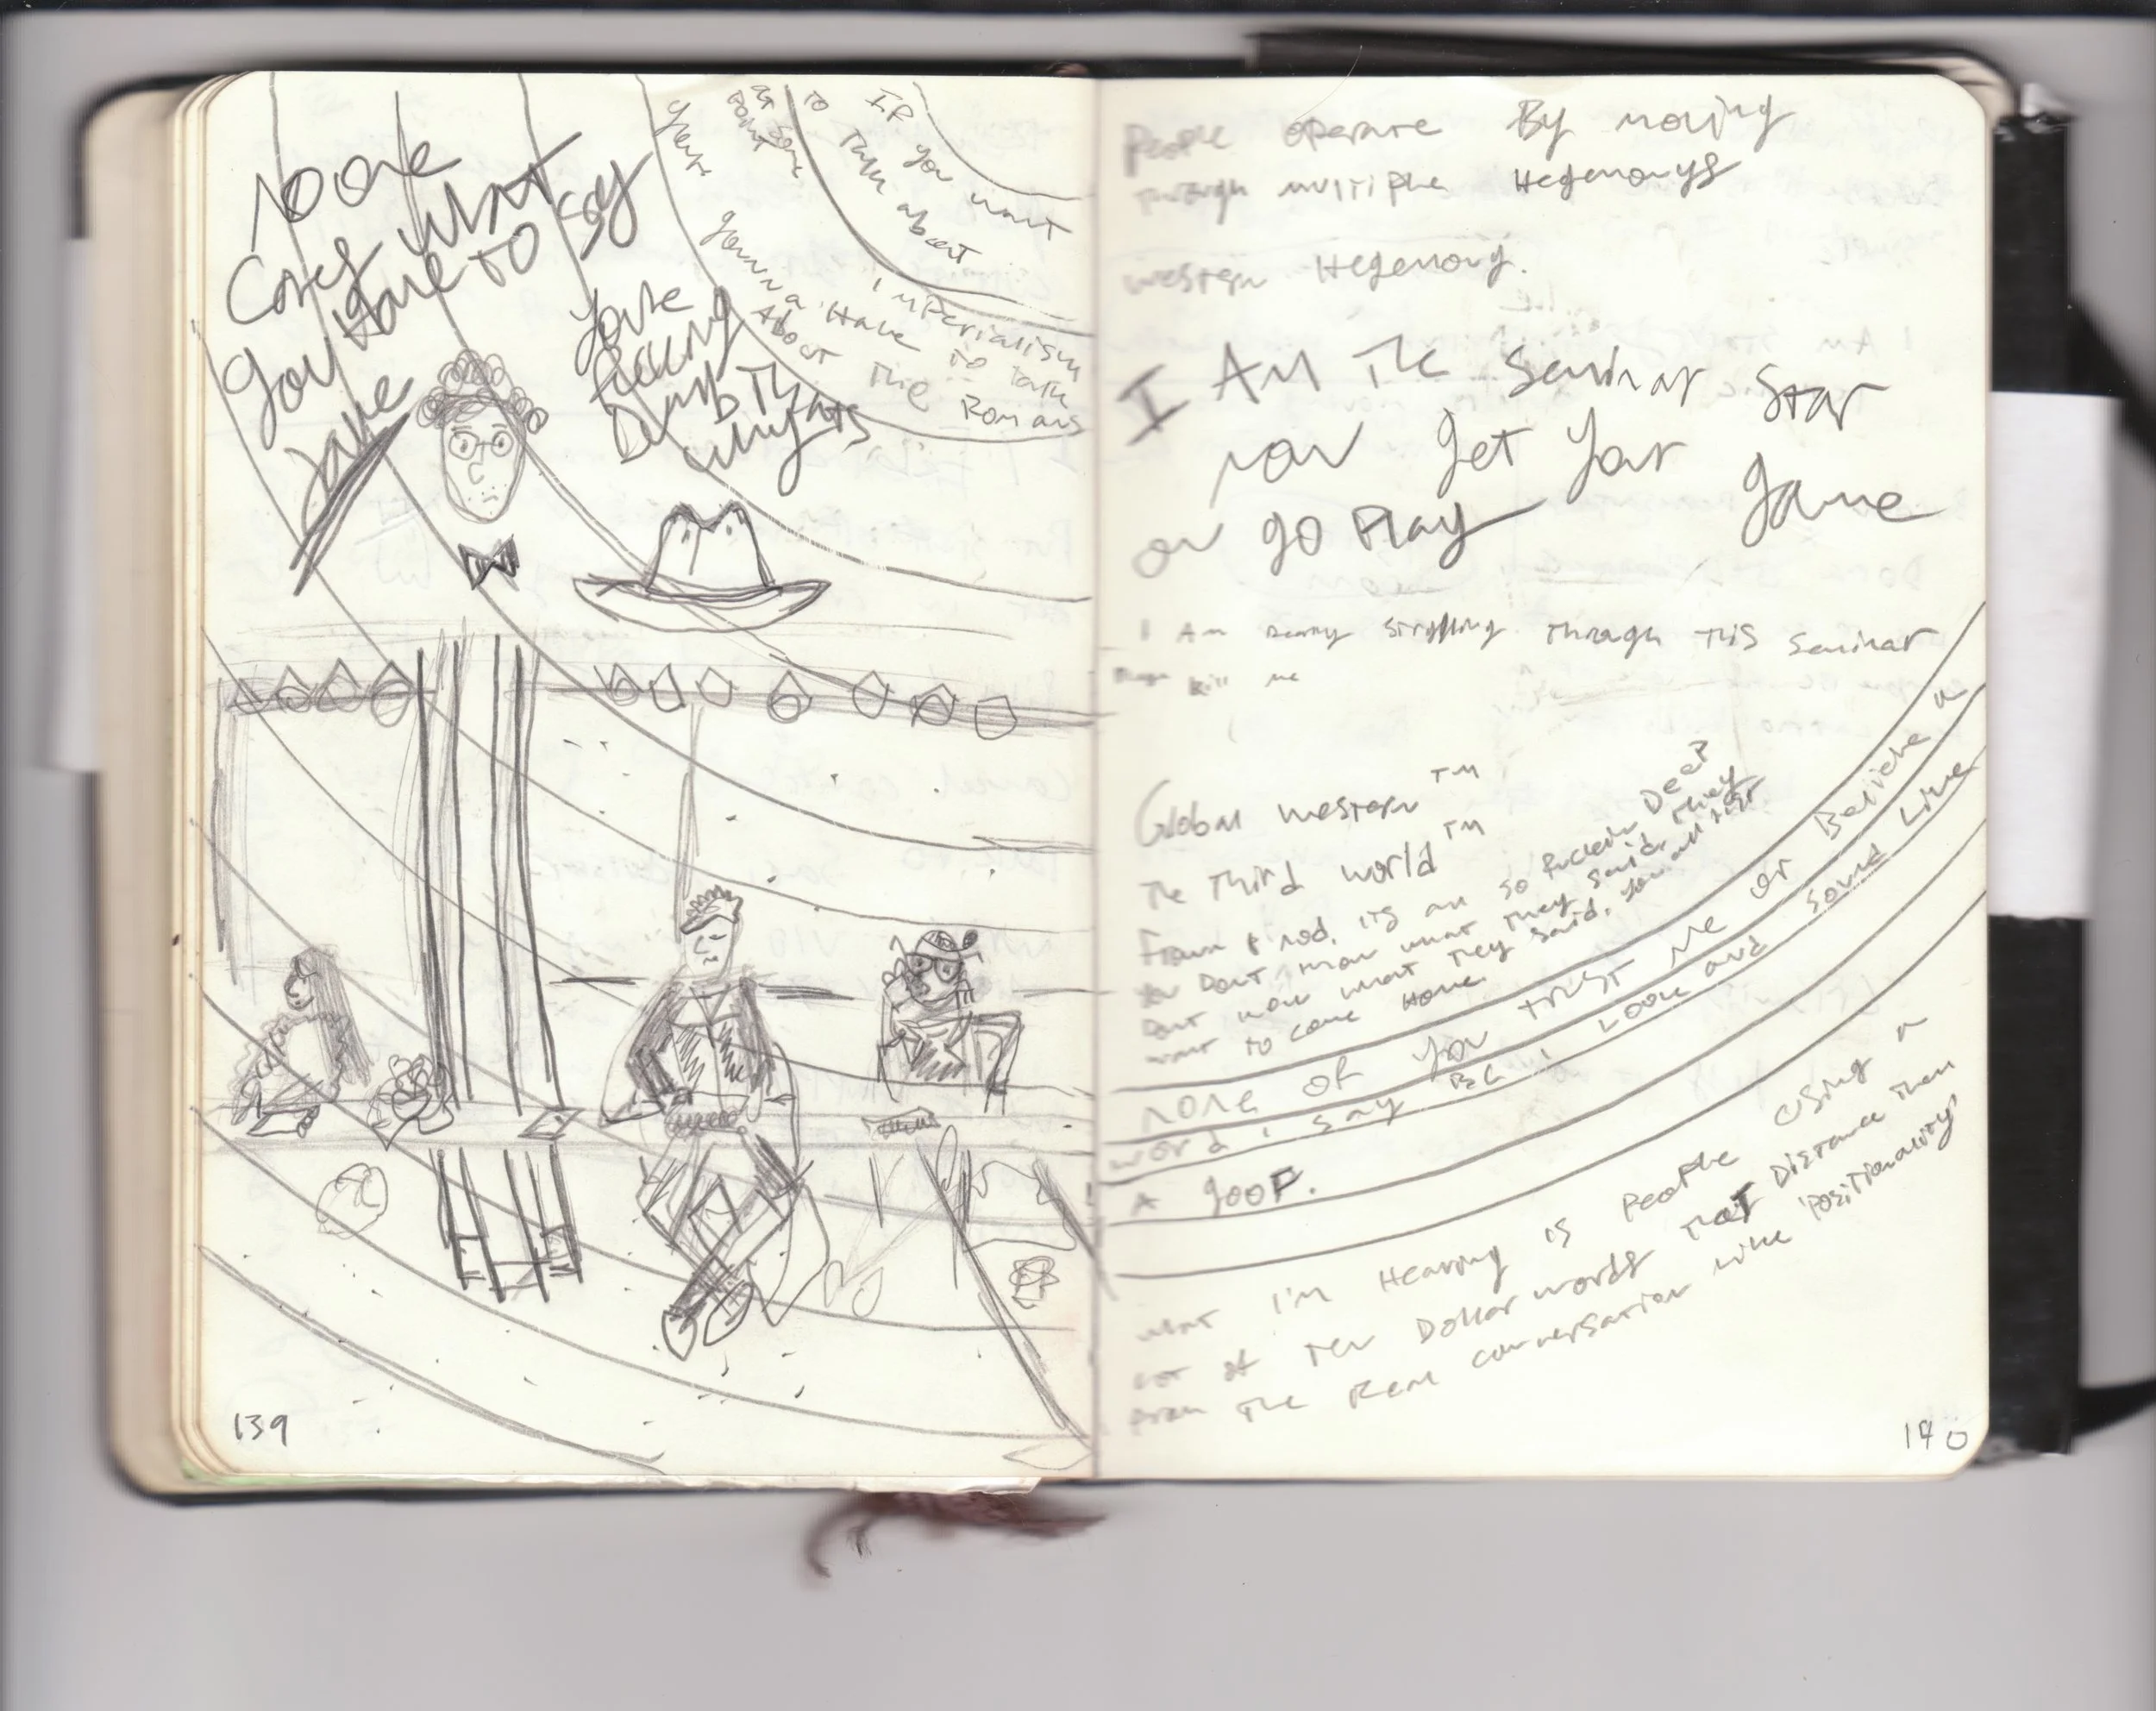 No one
Cares what
you Have to say
Jake
you're
fucking
Dumb Thats
why
IF you want
to Talk about
imperialism
at some
point
your
gunna Have to talk
About The Romans
139
People operate By moving
Through multiple Hegemonys
western Hegemony.
I Am The Seminar Star
now get your game
on go Play
I Am Really struggling Through This Seminar
Please kill me
Global western ™
The Third world ™
Frown & nod, its all so fucken Deep
you Dont know what They said, They
Dont know what They said, you all just
want to come Home
none of you trust me or Believe a
word i say Bc i Look and sound Like
A goof.
what I'm Hearing is people using a
lot of Ten Dollar words That Distance Them
from The Real conversation Like 'Positionality'
140